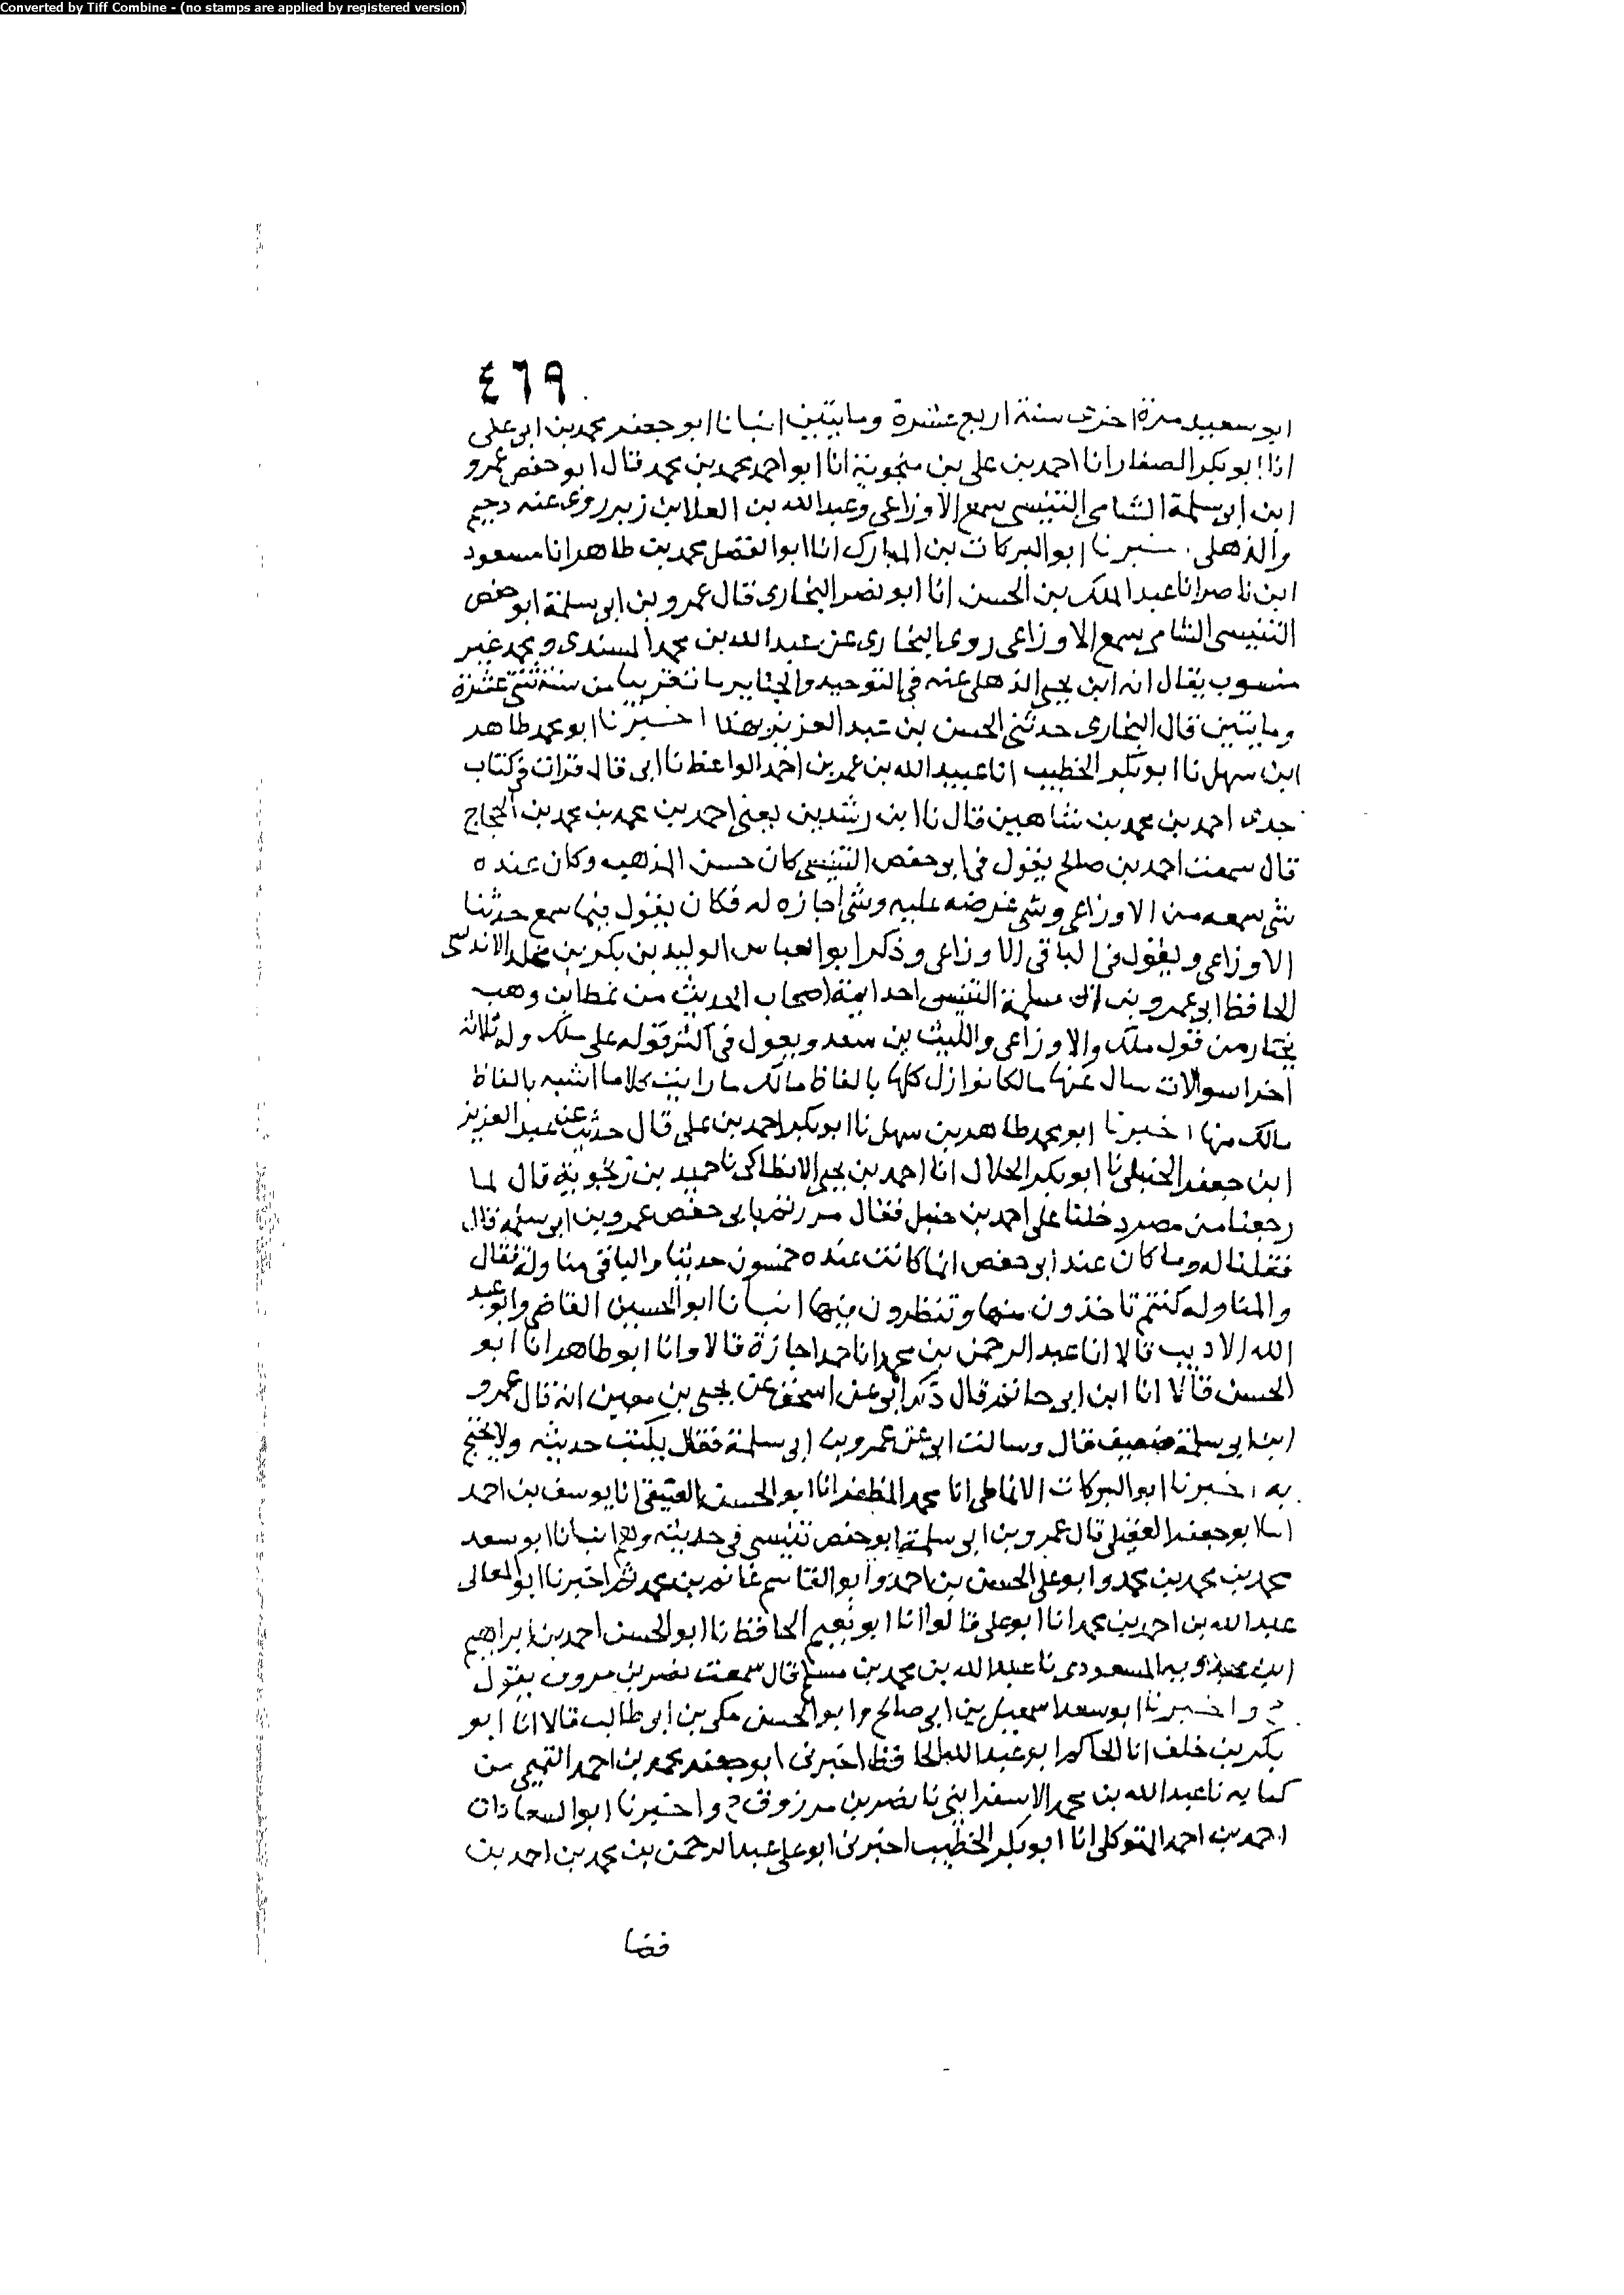 Converted by Tiff Combine - (no stamps are applied by registered version)
٤٦٩
ابو سعيد مرة اخرى سنة اربع عشرة ومايتين انبانا ابو جعفر محمد بن ابى على
انا ابو بكر الصفار انا احمد بن على بن منجوية انا ابو احمد محمد بن محمد قال ابو حفص عمرو
ابن ابى سلمة الشامى التنيسى سمع الاوزاعى وعبد الله بن العلا بن زبر روى عنه دحيم
والذهلى خبرنا ابو البركات بن المبارك انا ابو الفضل محمد بن طاهر انا مسعود
ابن ناصر انا عبد الملك بن الحسن انا ابو نصر البخارى قال عمرو بن ابى سلمة ابو حفص
التنيسى الشامى سمع الاوزاعى روى البخارى عن عبد الله بن محمد المسندى ومحمد غير
منسوب يقال انه ابن يحيى الذهلى عنه فى التوحيد والجنايز مات قريبا من سنة ثنتى عشرة
ومايتين قال البخارى حدثنى الحسن بن عبد العزيز بهذا اخبرنا ابو محمد طاهر
ابن سهل نا ابو بكر الخطيب انا عبيد الله بن عمر بن احمد الواعظ نا ابى قال قرات فى كتاب
جدى احمد بن محمد بن شاهين قال نا ابن رشدين يعنى احمد بن محمد بن محمد بن الحجاج
قال سمعت احمد بن صالح يقول فى ابو حفص التنيسى كان حسن المذهب وكان عنده
شى سمعه من الاوزاعى وشى عرضه عليه وشى اجازه له فكان يقول فيما سمع حدثنا
الاوزاعى ويقول فى الباقى الاوزاعى وذكر ابو العباس الوليد بن بكر بن مخلد الاندلسى
الحافظ ابى عمرو بن ابى سلمة التنيسى احد ايمة اصحاب الحديث من نمط ابن وهب
يختار من قول ملك والاوزاعى والليث بن سعد ويعول فى اكثر قوله على ملك وله ثلاثة
اخرا سوالات سال عنها مالكا نوازل كلها بالفاظ مالك ما رايت كلاما اشبه بالفاظ
مالك منها اخبرنا ابو محمد طاهر بن سهل نا ابو بكر احمد بن على قال حدثت عن عبد العزيز
ابن جعفر الحنبلى نا ابو بكر الخلال انا احمد بن يحيى الانطاكى نا حميد بن زنجوية قال لما
رجعنا من مصر دخلنا على احمد بن حنبل فقال مررتم بابى حفص عمرو بن ابى سلمة قال
فقلنا له وما كان عند ابى حفص انما كانت عنده خمسون حديثا والباقى مناولة فقال
والمناوله كنتم تاخذون منها وتنظرون فيها انبانا ابو الحسين القاضى وابو عبد
الله الاديب قالا انا عبد الرحمن بن محمد انا حمد اجازة قالا وانا ابو طاهر انا ابو
الحسن قالا انا ابن ابى حاتم قال ذكر ابى عن اسحق عن يحيى بن معين انه قال عمرو
ابن ابى سلمة ضعيف قال وسالت ابى عن عمرو بن ابى سلمة فقال يكتب حديثه ولا يحتج
به اخبرنا ابو البركات الانماطى انا محمد المظفر انا ابو الحسن العتيقى انا يوسف بن احمد
انا ابو جعفر العقيلى قال عمرو بن ابى سلمة ابو حفص تنيسى فى حديثه وهم انبانا ابو سعد
محمد بن محمد بن محمد وابو على الحسن بن احمد وابو القاسم غانم بن محمد ثم اخبرنا ابو المعالى
عبد الله بن احمد بن محمد انا ابو على قالوا انا ابو نعيم الحافظ نا ابو الحسن احمد بن ابراهيم
ابن المسعودى نا عبد الله بن محمد بن مسلم قال سمعت نصر بن مروق يقول
ح واخبرنا ابو سعد اسمعيل بن ابى صالح وابو الحسن مكى بن ابو طالب قالا انا ابو
بكر بن خلف انا الحاكم ابو عبد الله الحافظ اخبرنى ابو جعفر محمد بن احمد التميمى من
كتابه نا عبد الله بن محمد الاسفراينى نا نصر بن مرزوق ح واخبرنا ابو السعادات
احمد بن احمد المتوكلى انا ابو بكر الخطيب اخبرنى ابو على عبد الرحمن بن محمد بن احمد بن
فضا